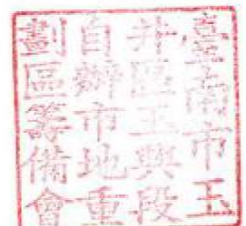 臺南市玉
井區玉興段
自辦市地重
劃區籌備會